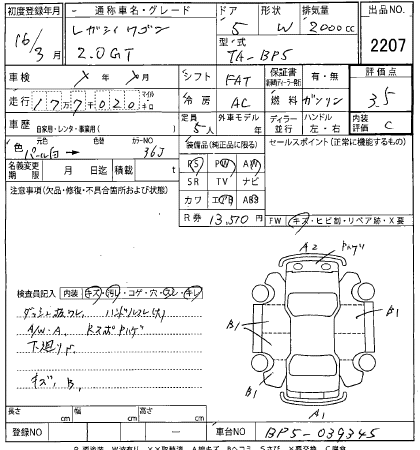 初度登録年月 通称車名・グレード ドア 形状 排気量 出品NO
16/3月 レガシィワゴン 5 W 2000cc 2207
2.0GT 型式 TA-BP5
車検 年 月 シフト FAT 保証書 有・無 評価点
走行 17万7千020 マイル キロ 冷房 AC 燃料 ガソリン 3.5
車歴 自家用・レンタ・事業用( ) 定員 5人 外車モデル 年 ディーラー 並行 ハンドル 左・右 内装評価 C
色 元色 パール白 → 色替 カラーNO 36J 装備品(純正品に限る) セールスポイント(正常に機能するもの)
名義変更期限 月 日迄 積載 t PS PW AW
注意事項(欠品・修復・不具合箇所および状態) SR TV ナビ
カワ エアB ABS
R券 13,510円 FW キズ・ヒビ割・リペア跡・X要
A2
検査員記入 内装 キズ・ヨゴレ・コゲ・穴・ワレ・キレ
A/W・A
下廻りS
キズ、B、
B1 B1 B1 A1
長さ cm 幅 cm 高さ cm
登録NO — 車台NO BP5-039345